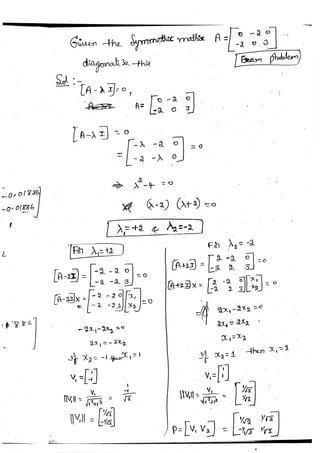 Given the Symmetric matrix A = [0 -2 0
-2 0 3]
diagonalize this
Exam problem
Sol:- [A - λI] = 0,
A = [0 -2 0
-2 0 3]
[A-λI] = 0
= [-λ -2 0
-2 -λ 0] = 0
⇒ λ² - 4 = 0
(λ-2) (λ+2) = 0
λ₁ = +2 & λ₂ = -2
For λ₁ = +2
[A-2I] = [-2 -2 0
-2 -2 3] = 0
[A-2I]x = [-2 -2 0
-2 -2 3] [x₁
x₂] = 0
-2x₁ - 2x₂ = 0
2x₁ = -2x₂
if x₂ = -1 then x₁ = 1
V₁ = [1
-1]
||V₁|| = V₁/√1²+1² = 1
-1/√2
||V₁|| = [1/√2
-1/√2]
For λ₂ = -2
[A+2I] = [2 -2 0
-2 2 3] = 0
[A+2I]x = [2 -2 0
-2 2 3] [x₁
x₂] = 0
2x₁ - 2x₂ = 0
2x₁ = 2x₂
x₁ = x₂
if x₂ = 1 then x₁ = 1
V₂ = [1
1]
||V₂|| = V₂/√1²+1² = [1/√2
1/√2]
P = [V₁ V₂] = [1/√2 1/√2
-1/√2 1/√2]